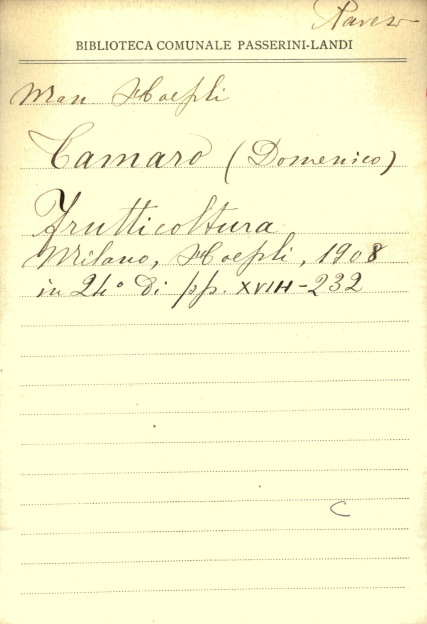 Pavesi
BIBLIOTECA COMUNALE PASSERINI-LANDI
Man. Hoepli
Tamaro (Domenico)
Frutticoltura
Milano, Hoepli, 1908
in 24° di pp. XVIII-232
C